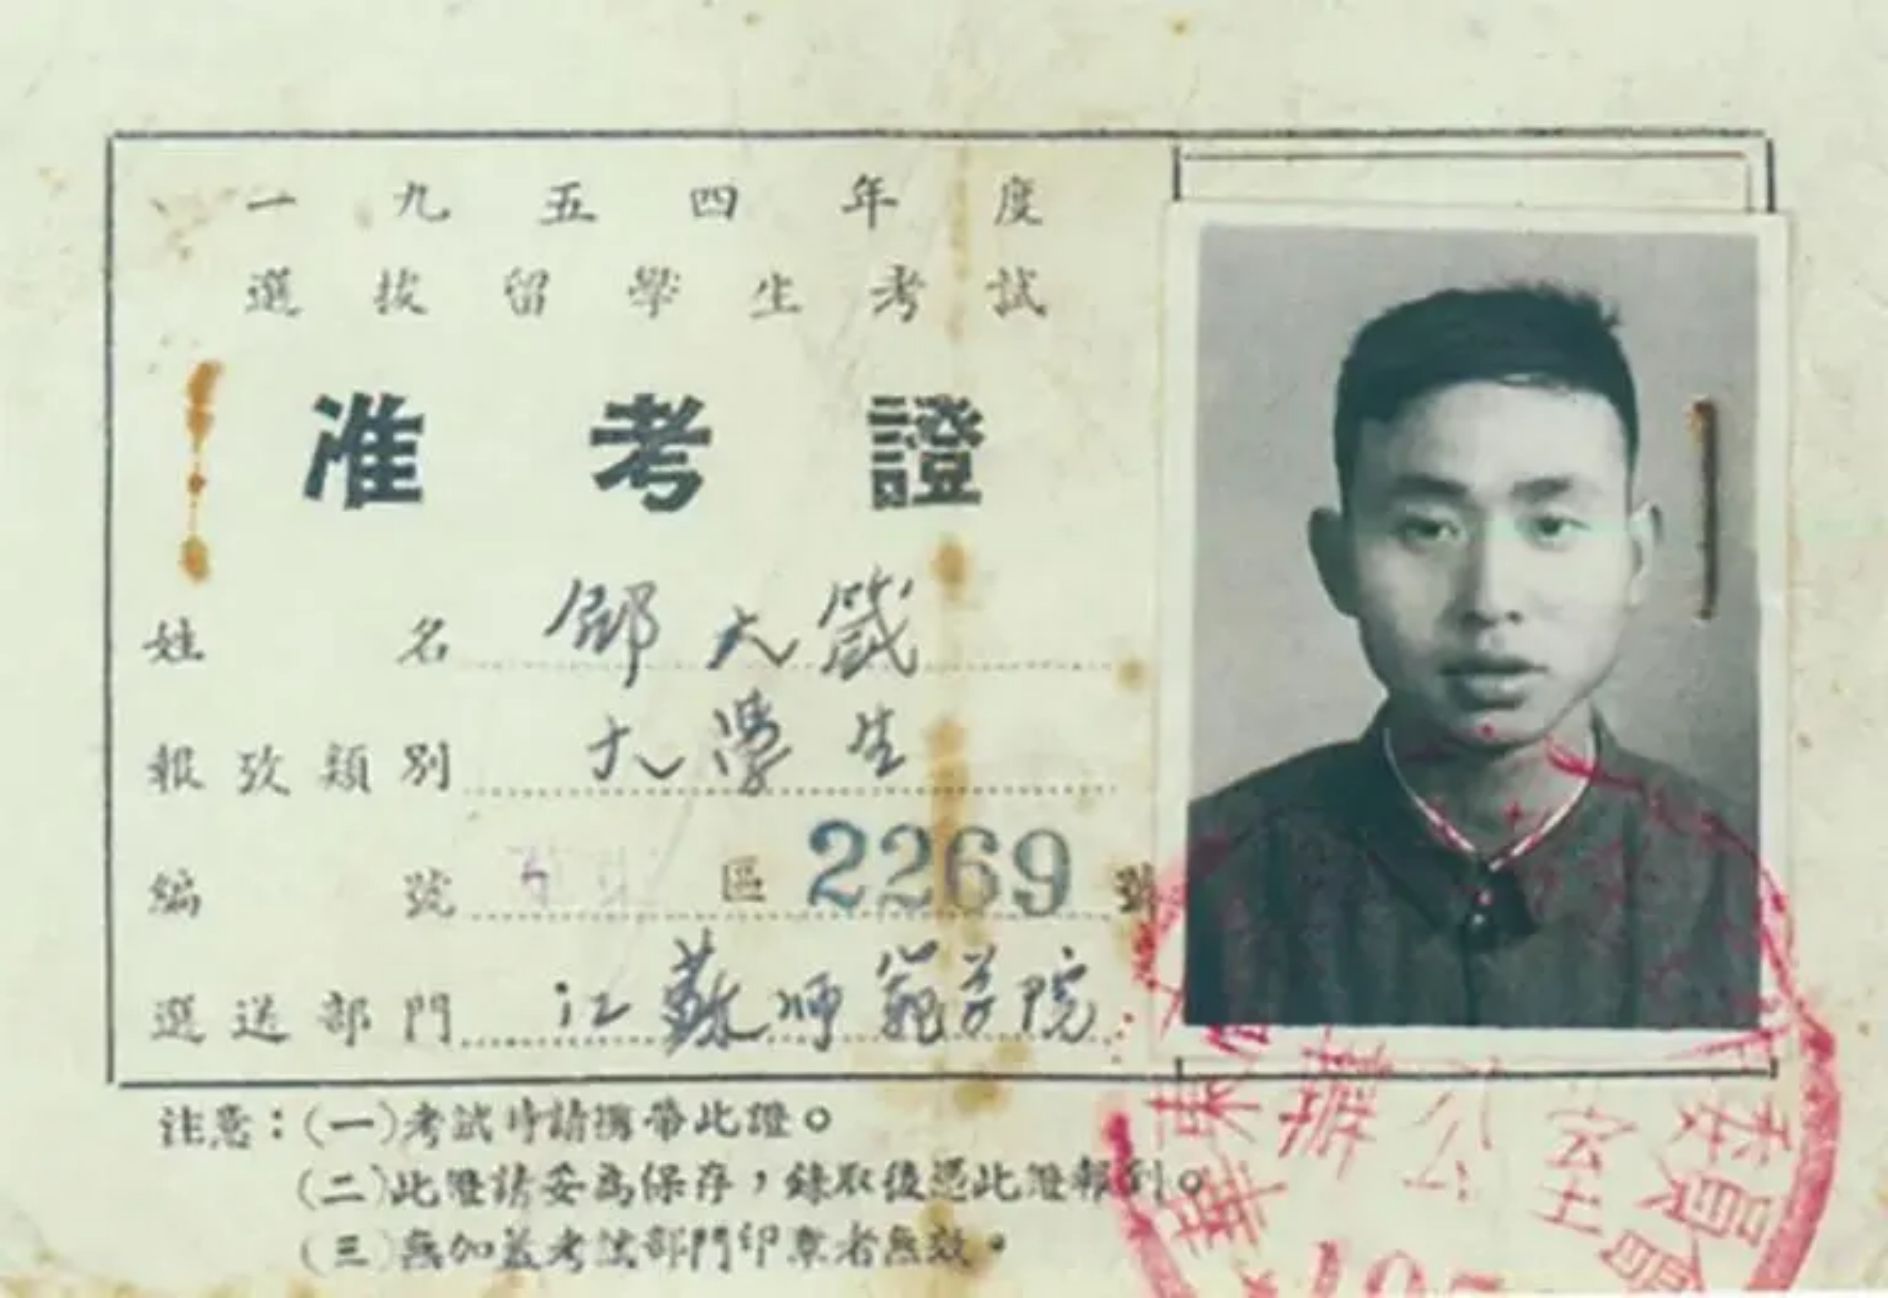 一九五四年度
選拔留學生考試
准考證
姓名 邵大箴
報攷類別 大學生
編號 區 2269 號
選送部門 江蘇师範学院
注意：(一)考試時請攜帶此證。
(二)此證請妥為保存，錄取後憑此證報到。
(三)無加蓋考試部門印章者無效。
辦公室
委員